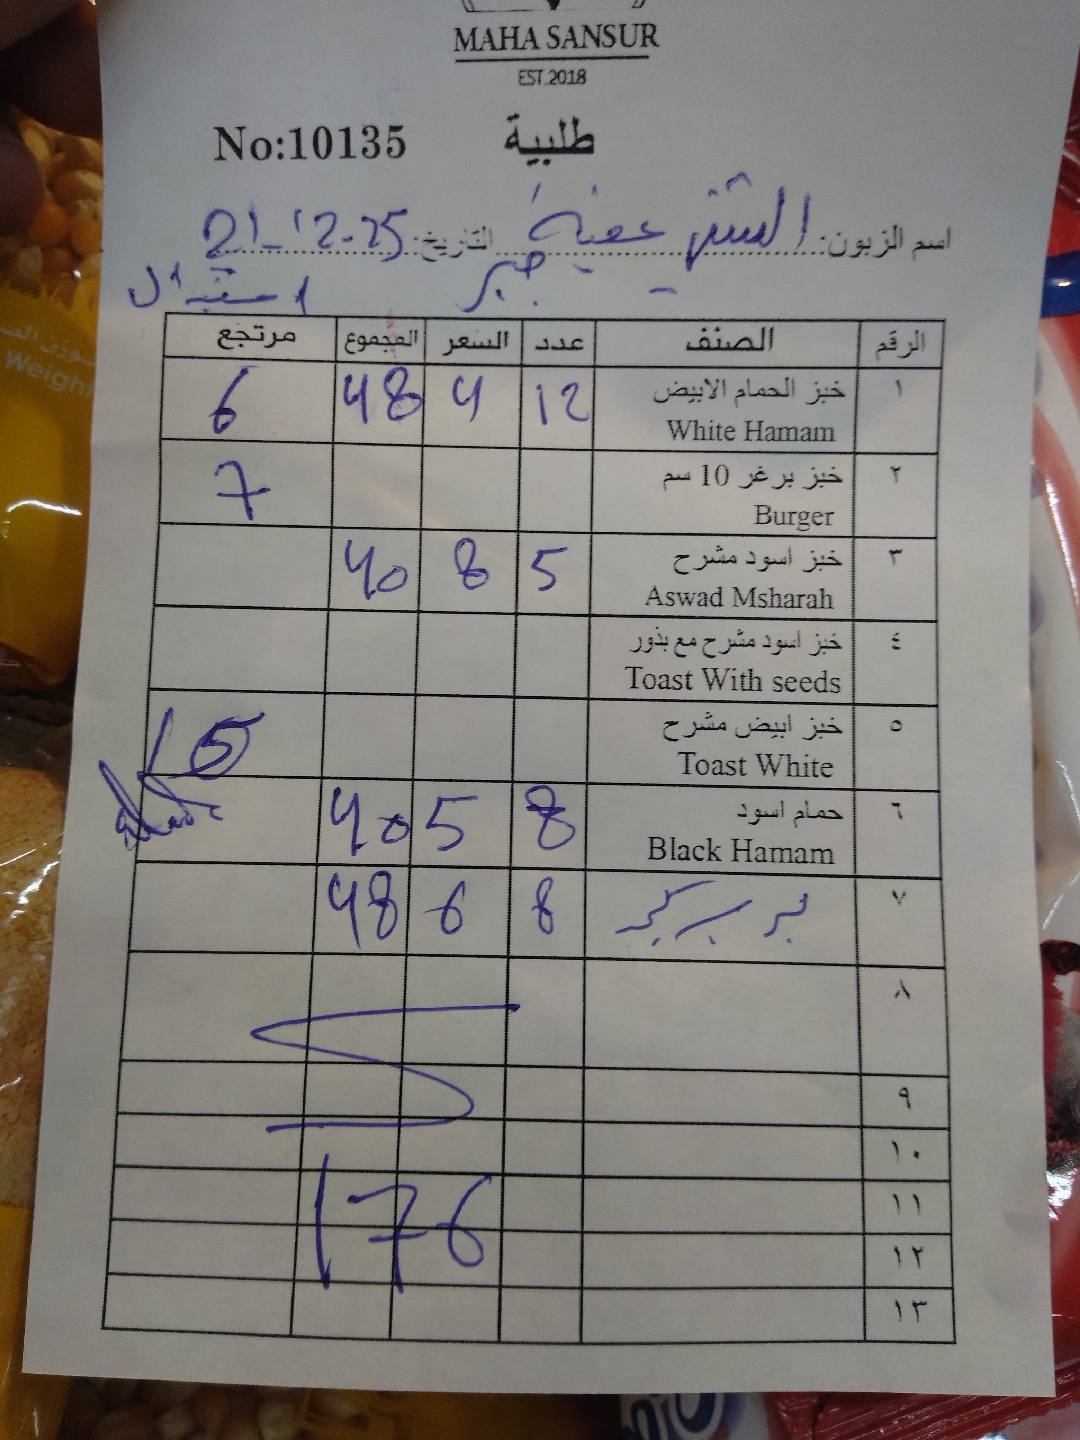 MAHA SANSUR
EST.2018
No:10135 طلبية
اسم الزبون: التاريخ: 21-12-25
الرقم الصنف عدد السعر المجموع مرتجع
١ خبز الحمام الابيض 12 4 48 6
White Hamam
٢ خبز برغر 10 سم 7
Burger
٣ خبز اسود مشرح 5 8 40
Aswad Msharah
٤ خبز اسود مشرح مع بذور
Toast With seeds
٥ خبز ابيض مشرح 5
Toast White
٦ حمام اسود 8 5 40
Black Hamam
٧ 8 6 48
٨
٩
١٠
١١
176
١٢
١٣